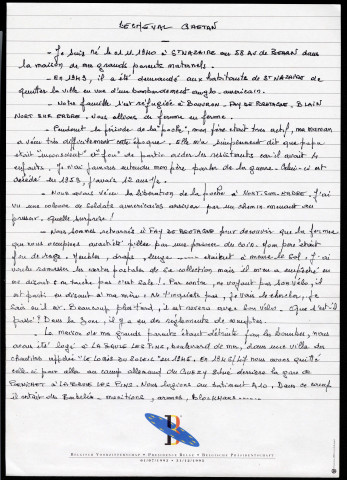 LECHEVAL GAETAN
- Je suis né le 21.11.1940 à St NAZAIRE au 58 AV de dans
la maison de ma grands parents maternels.
- En 1943, il a été demandé aux habitants de St NAZAIRE de
quitter la ville en vue d'un bombardement anglo-américain.
- Notre famille s'est réfugiée à BOUVRON - FAY DE BRETAGNE - BLAIN
NORT SUR ERDRE. Nous allions de ferme en ferme.
- Pendant la période de la "poche", mon père était très actif, ma maman
a vécu très difficilement cette époque. Elle m'a simplement dit que papa
était "inconscient" et "fou" de partir aider les résistants car il avait 4
enfants. Je n'ai jamais entendu mon père parler de la guerre. Celui-ci est
décédé en 1953, j'avais 12 ans 1/2.
- Nous avons vécu la libération de la poche à NORT-SUR-ERDRE. J'ai
vu une colonne de soldats américains arriver par un chemin menant au
quelle surprise !
- Nous sommes retournés à FAY DE BRETAGNE pour découvrir que la ferme
que nous occupions avait été pillée par une personne du coin. Mon père était
fou de rage. Meubles, draps, linges étaient à même le sol. J'ai
voulu ramasser les cartes postales de sa collection mais il m'en a empêché en
me disant "ne touche pas c'est sale". Par contre, ne voyant pas son vélo, il
est parti en disant à ma mère, ne t'inquiète pas, je vais le chercher, je
sais où il est. Beaucoup plus tard, il est revenu avec son vélo. Que s'est-il
passé ? Dans la zone, il y a eu des règlements de comptes.
- La maison de ma grands parents étant détruite par les bombes, nous
avons été logé à LA BAULE LES PINS, boulevard de mer, dans une villa
appelée "LE LOGIS DU SOLEIL" en 1945. En 1946/47 nous avons quitté
celle-ci pour aller au camp allemand du GUEZY situé derrière la gare de
PORNICHET à LA BAULE LES PINS. Nous logions au bâtiment A10. Dans ce camp
il restait des Barbelés, munitions, armes, Blockhaus
B
BELGISCH VOORZITTERSCHAP • PRÉSIDENCE BELGE • BELGISCHE PRÄSIDENTSCHAFT